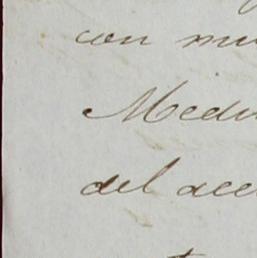 con mu
Medi
del acc